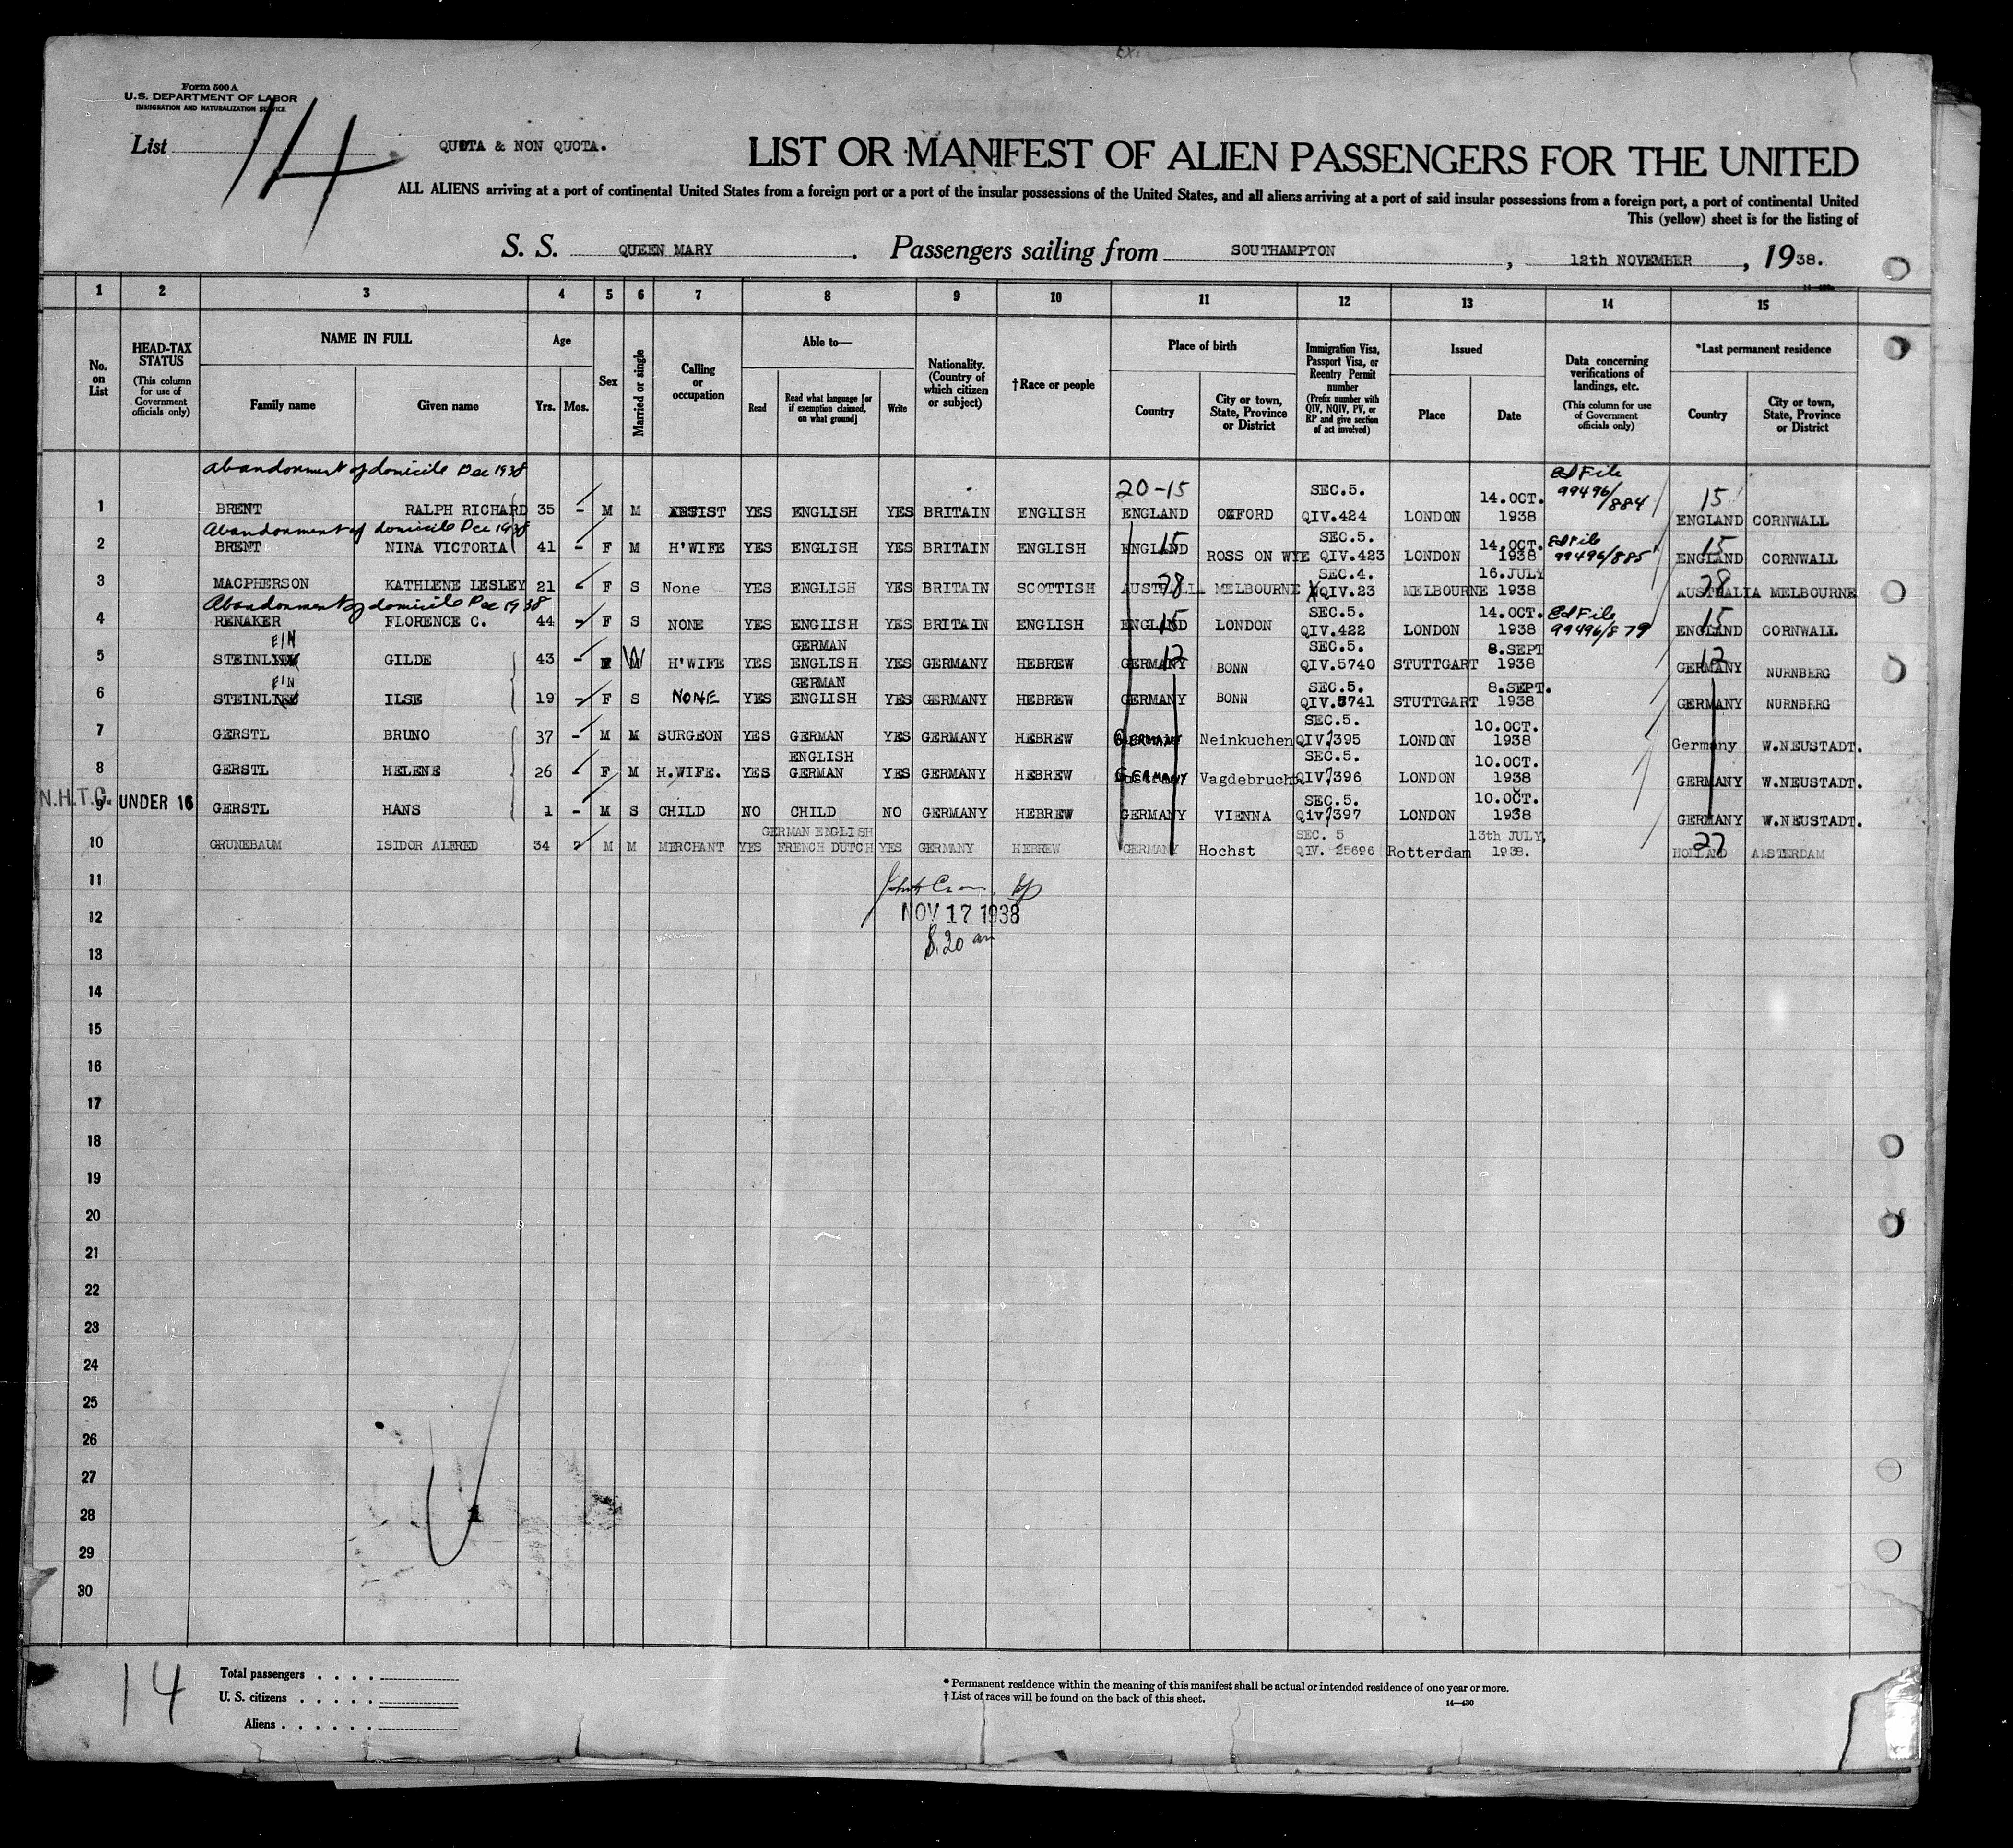 Form 500 A
U.S. DEPARTMENT OF LABOR
IMMIGRATION AND NATURALIZATION SERVICE
List 14
QUOTA & NON QUOTA.
LIST OR MANIFEST OF ALIEN PASSENGERS FOR THE UNITED
ALL ALIENS arriving at a port of continental United States from a foreign port or a port of the insular possessions of the United States, and all aliens arriving at a port of said insular possessions from a foreign port, a port of continental United
This (yellow) sheet is for the listing of
S. S. QUEEN MARY. Passengers sailing from SOUTHAMPTON, 12th NOVEMBER, 1938.
1 2 3 4 5 6 7 8 9 10 11 12 13 14 15
No. on List
HEAD-TAX STATUS
(This column for use of Government officials only)
NAME IN FULL
Family name
Given name
Age
Yrs. Mos.
Sex
Married or single
Calling or occupation
Able to—
Read
Read what language [or if exemption claimed, on what ground]
Write
Nationality. (Country of which citizen or subject)
†Race or people
Place of birth
Country
City or town, State, Province or District
Immigration Visa, Passport Visa, or Reentry Permit number
(Prefix number with QIV, NQIV, PV, or RP and give section of act involved)
Issued
Place
Date
Data concerning verifications of landings, etc.
(This column for use of Government officials only)
*Last permanent residence
Country
City or town, State, Province or District
Abandonment of domicile Dec 1938
1 BRENT RALPH RICHARD 35 - M M ARTIST YES ENGLISH YES BRITAIN ENGLISH 20-15 ENGLAND OXFORD SEC.5. QIV.424 LONDON 14.OCT. 1938 Ed File 99496/884 15 ENGLAND CORNWALL
Abandonment of domicile Dec 1938
2 BRENT NINA VICTORIA 41 - F M H'WIFE YES ENGLISH YES BRITAIN ENGLISH ENGLAND 15 ROSS ON WYE SEC.5. QIV.423 LONDON 14.OCT. 1938 Ed File 99496/885 15 ENGLAND CORNWALL
3 MACPHERSON KATHLENE LESLEY 21 - F S None YES ENGLISH YES BRITAIN SCOTTISH AUSTRALIA 28 MELBOURNE SEC.4. NQIV.23 MELBOURNE 16.JULY 1938 28 AUSTRALIA MELBOURNE
Abandonment of domicile Dec 1938
4 RENAKER FLORENCE C. 44 - F S NONE YES ENGLISH YES BRITAIN ENGLISH ENGLAND 15 LONDON SEC.5. QIV.422 LONDON 14.OCT. 1938 Ed File 99496/879 15 ENGLAND CORNWALL
5 STEINLEIN GILDE 43 - F W H'WIFE YES GERMAN ENGLISH YES GERMANY HEBREW GERMANY 12 BONN SEC.5. QIV.5740 STUTTGART 8.SEPT 1938 12 GERMANY NURNBERG
6 STEINLEIN ILSE 19 - F S NONE YES GERMAN ENGLISH YES GERMANY HEBREW GERMANY BONN SEC.5. QIV.5741 STUTTGART 8.SEPT. 1938 GERMANY NURNBERG
7 GERSTL BRUNO 37 - M M SURGEON YES GERMAN YES GERMANY HEBREW GERMANY Neinkuchen SEC.5. QIV7395 LONDON 10.OCT. 1938 Germany W.NEUSTADT.
8 GERSTL HELENE 26 - F M H.WIFE. YES ENGLISH GERMAN YES GERMANY HEBREW GERMANY Vagdebrucho SEC.5. QIV7396 LONDON 10.OCT. 1938 GERMANY W.NEUSTADT.
N.H.T.C. UNDER 16
9 GERSTL HANS 1 - M S CHILD NO CHILD NO GERMANY HEBREW GERMANY VIENNA SEC.5. Qiv7397 LONDON 10.OCT. 1938 GERMANY W.NEUSTADT.
10 GRUNEBAUM ISIDOR ALFRED 34 M M MERCHANT YES GERMAN ENGLISH FRENCH DUTCH YES GERMANY HEBREW GERMANY Hochst SEC. 5 QIV. 25696 Rotterdam 13th JULY, 1938. 27 HOLLAND AMSTERDAM
11
NOV 17 1938
12
8.20 am
13
14
15
16
17
18
19
20
21
22
23
24
25
26
27
28
29
30
14
Total passengers . . . .
U. S. citizens . . . . .
Aliens . . . . . .
* Permanent residence within the meaning of this manifest shall be actual or intended residence of one year or more.
† List of races will be found on the back of this sheet.
14—430